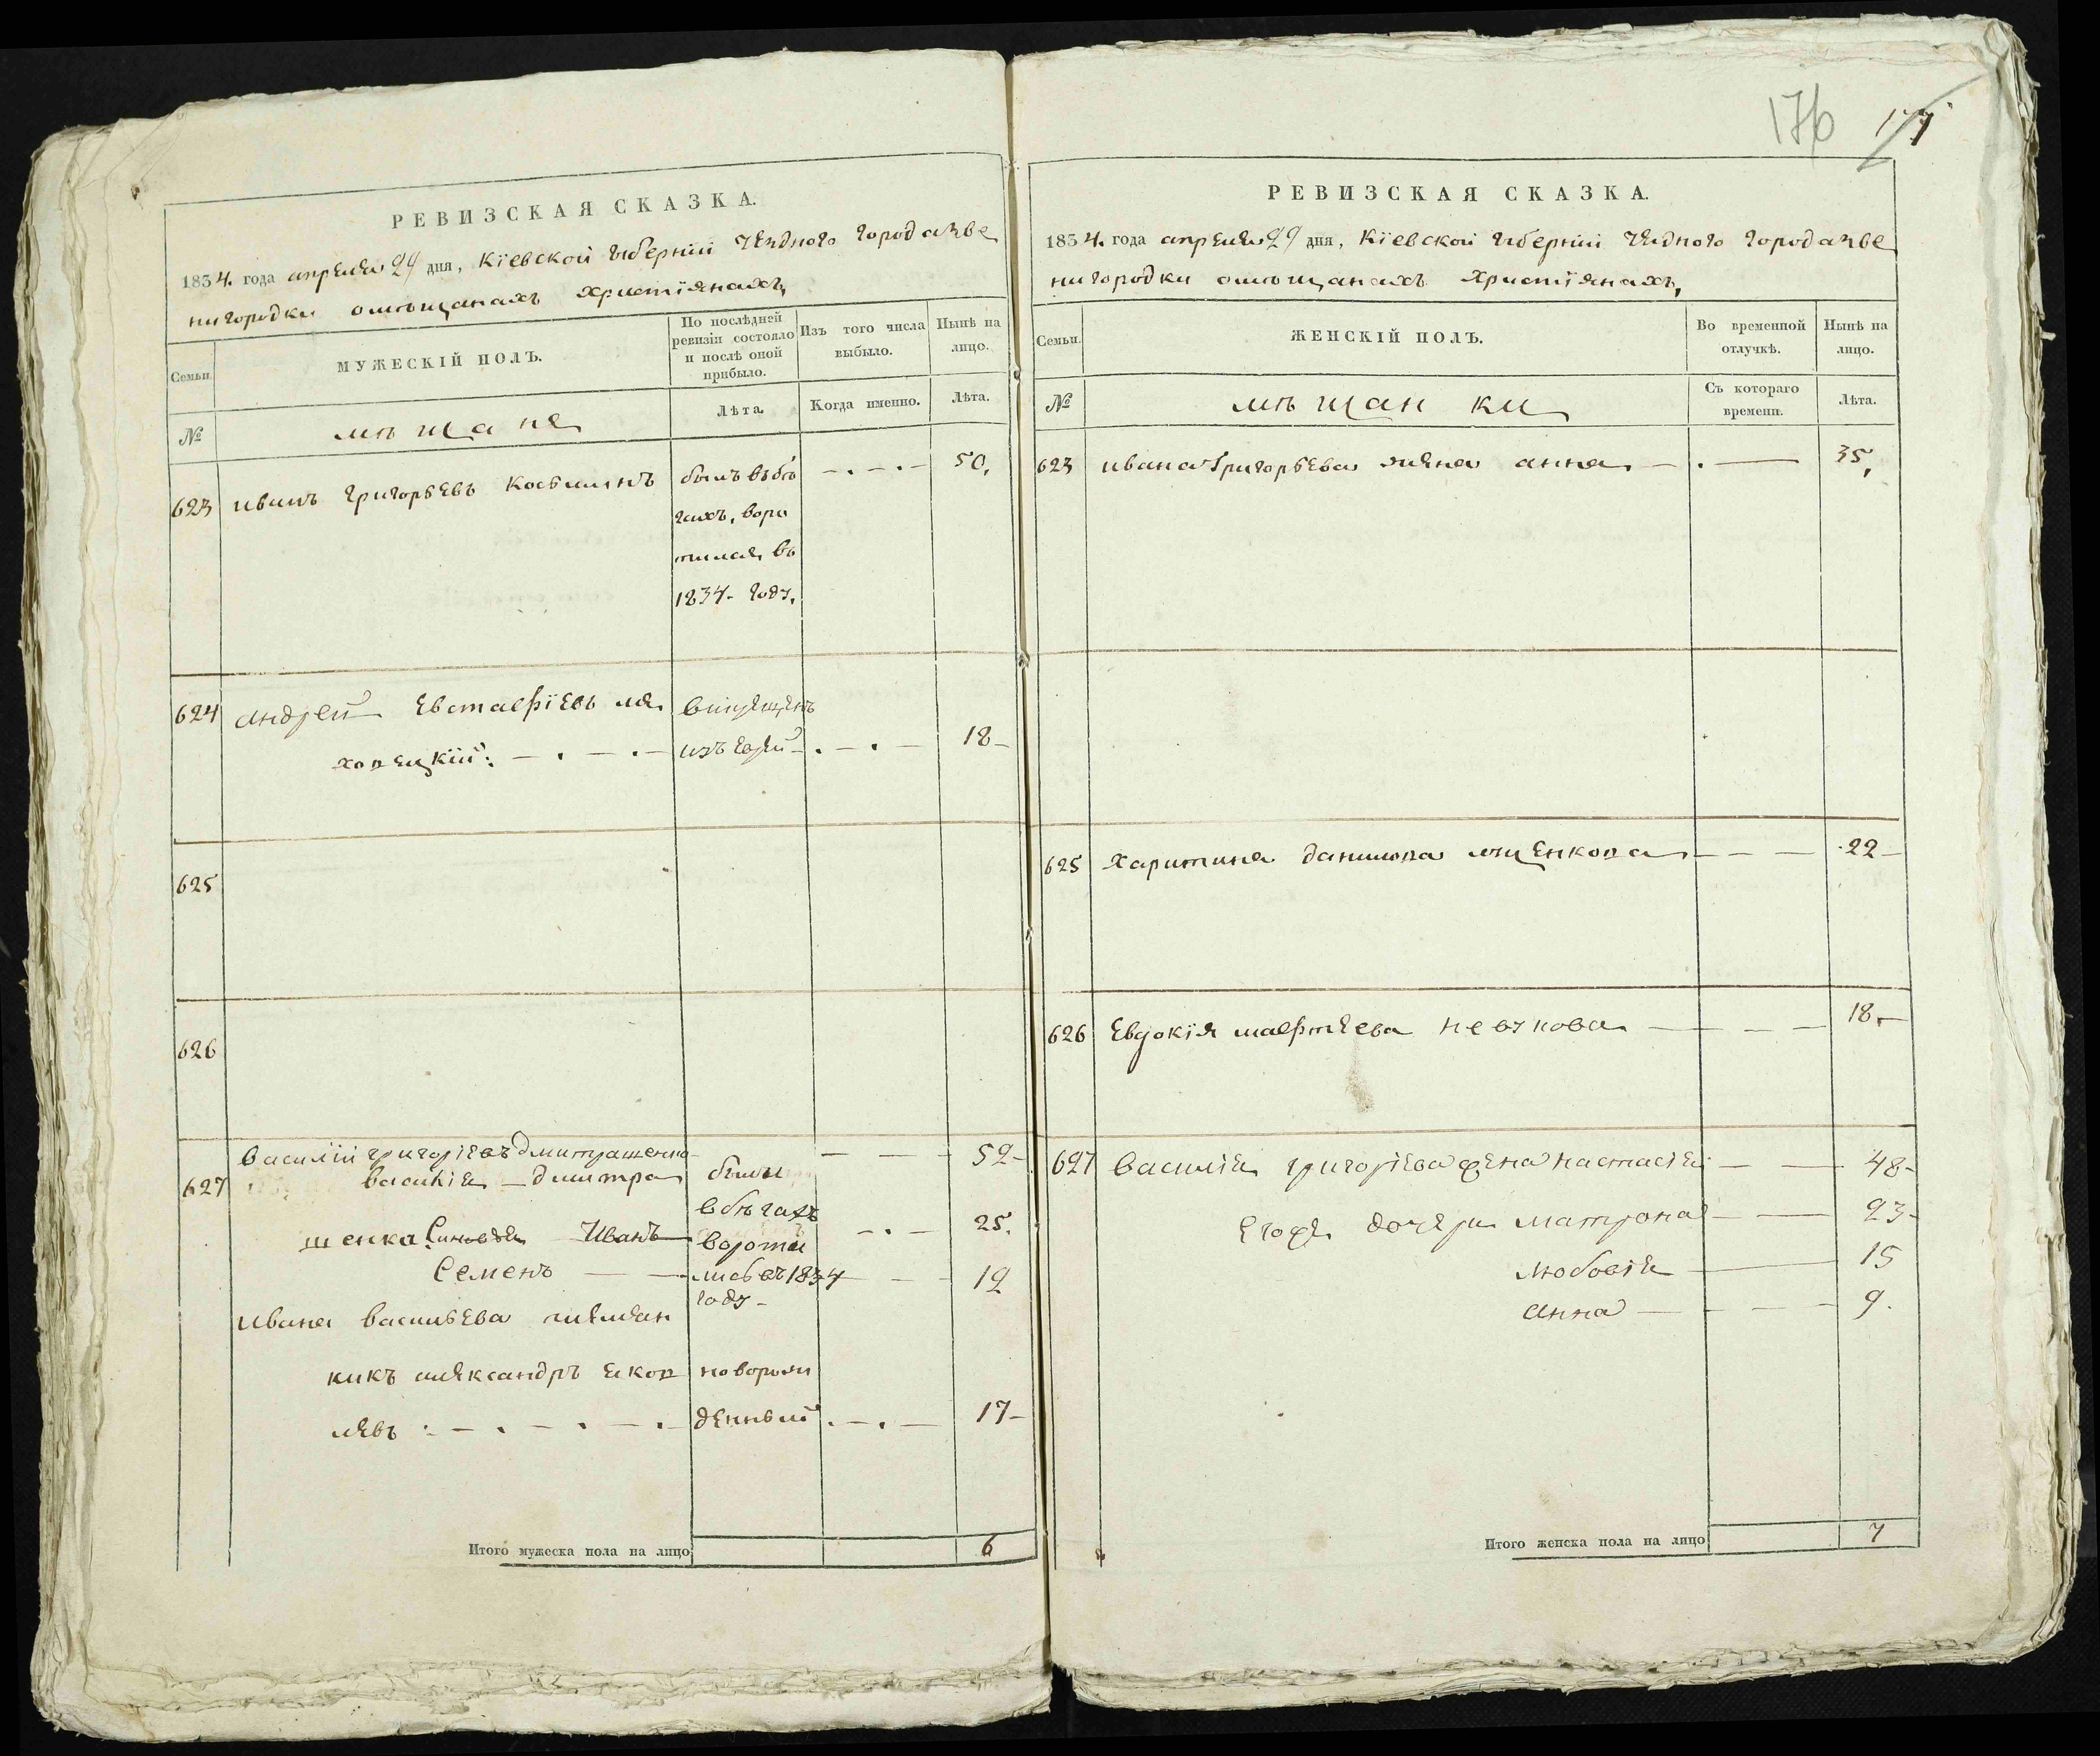 РЕВИЗСКАЯ СКАЗКА.
1834. года апреля 29 дня, Кіевской губерніи уезднаго города Зве
нигородки о мѣщанахъ христіянахъ,
Семьи.
МУЖЕСКІЙ ПОЛЪ.
По послѣдней ревизіи состояло и послѣ оной прибыло.
Изъ того числа выбыло.
Нынѣ на лицо.
№
мѣщане
Лѣта.
Когда именно.
Лѣта.
623 иванъ григорьевъ былъ въ бѣ 50,
гахъ, воро
тился въ
1834- году,
624 андрей Евстафіевъ ля
хопецкій: изъ 18-
625
626
василій григоріевъ Дмитрашенко 52-
627 василія дмитра были
в бѣгахъ
шенка Синовья Иванъ вороти 25.
Семенъ лись въ 1834 12
году-
ивана васильева племян
никъ александръ яков новорож
левъ денный 17-
Итого мужеска пола на лицо 6
176 177
РЕВИЗСКАЯ СКАЗКА.
1834. года апреля 29 дня, Кіевской губерніи уездного города Зве
нигородки о мѣщанахъ христіянахъ,
Семьи.
ЖЕНСКІЙ ПОЛЪ.
Во временной отлучкѣ.
Нынѣ на лицо.
№
мѣщанки
Съ котораго времени.
Лѣта.
623 ивана Григорьева жена анна 35,
625 Харитина данилова 22-
626 Евдокія матфеева 18.-
627 василія григоріева жена настасія 48-
Егоже дочери матрона 23-
любовія 15
анна 9.
Итого женска пола на лицо 7